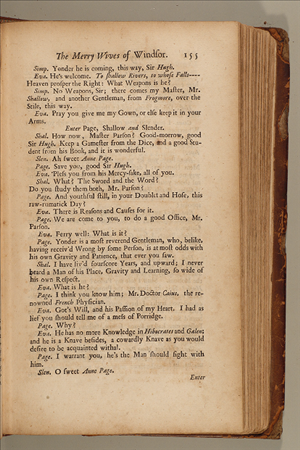 The Merry Wives of Windsor. 155
Simp. Yonder he is coming, this way, Sir Hugh.
Eva. He's welcome. To shallow Rivers, to whose Falls----
Heaven prosper the Right: What Weapons is he?
Simp. No Weapons, Sir; there comes my Master, Mr.
Shallow, and another Gentleman, from Frogmore, over the
Stile, this way.
Eva. Pray you give me my Gown, or else keep it in your
Arms.
Enter Page, Shallow and Slender.
Shal. How now, Master Parson? Good-morrow, good
Sir Hugh. Keep a Gamester from the Dice, and a good Stu-
dent from his Book, and it is wonderful.
Slen. Ah sweet Anne Page.
Page. Save you, good Sir Hugh.
Eva. 'Pless you from his Mercy-sake, all of you.
Shal. What? The Sword and the Word?
Do you study them both, Mr. Parson?
Page. And youthful still, in your Doublet and Hose, this
raw-rumatick Day?
Eva. There is Reasons and Causes for it.
Page. We are come to you, to do a good Office, Mr.
Parson.
Eva. Ferry well: What is it?
Page. Yonder is a most reverend Gentleman, who, belike,
having receiv'd Wrong by some Person, is at most odds with
his own Gravity and Patience, that ever you saw.
Shal. I have liv'd fourscore Years, and upward; I never
heard a Man of his Place, Gravity and Learning, so wide of
his own Respect.
Eva. What is he?
Page. I think you know him; Mr. Doctor Caius, the re-
nowned French Physician.
Eva. Got's Will, and his Passion of my Heart. I had as
lief you should tell me of a mess of Porridge.
Page. Why?
Eva. He has no more Knowledge in Hibocrates and Galen;
and he is a Knave besides, a cowardly Knave as you would
desire to be acquainted withal.
Page. I warrant you, he's the Man should fight with
him.
Slen. O sweet Anne Page.
Enter